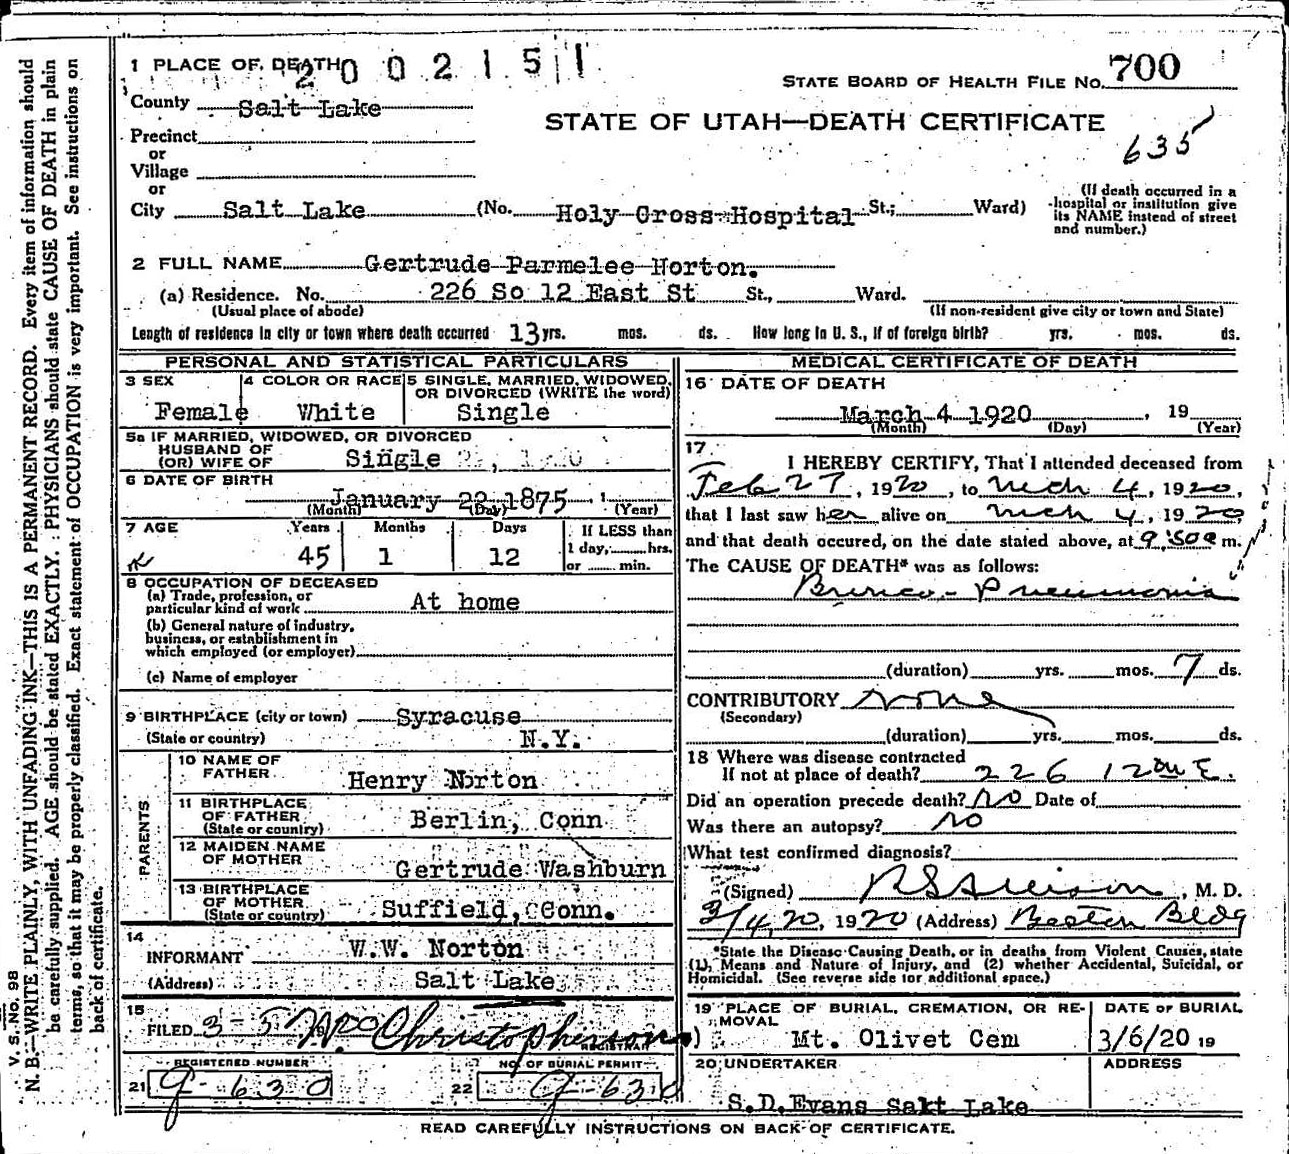 V. S. No. 98
N. B.—WRITE PLAINLY, WITH UNFADING INK—THIS IS A PERMANENT RECORD. Every item of information should
be carefully supplied. AGE should be stated EXACTLY. PHYSICIANS should state CAUSE OF DEATH in plain
terms, so that it may be properly classified. Exact statement of OCCUPATION is very important. See instructions on
back of certificate.
1 PLACE OF DEATH
2002151
STATE BOARD OF HEALTH FILE No. 700
County Salt Lake
STATE OF UTAH—DEATH CERTIFICATE
635
Precinct
or
Village
or
City Salt Lake (No. Holy Cross Hospital St.; Ward)
(If death occurred in a
hospital or institution give
its NAME instead of street
and number.)
2 FULL NAME Gertrude Parmelee Norton.
(a) Residence. No. 226 So 12 East St St., Ward.
(Usual place of abode) (If non-resident give city or town and State)
Length of residence in city or town where death occurred 13 yrs. mos. ds. How long in U. S., if of foreign birth? yrs. mos. ds.
PERSONAL AND STATISTICAL PARTICULARS
3 SEX
Female
4 COLOR OR RACE
White
5 SINGLE, MARRIED, WIDOWED,
OR DIVORCED (WRITE the word)
Single
5a IF MARRIED, WIDOWED, OR DIVORCED
HUSBAND OF
(OR) WIFE OF Single
6 DATE OF BIRTH
January 22 1875, 1
(Month) (Day) (Year)
7 AGE Years Months Days If LESS than
45 1 12 1 day, hrs.
or min.
8 OCCUPATION OF DECEASED
(a) Trade, profession, or
particular kind of work At home
(b) General nature of industry,
business, or establishment in
which employed (or employer)
(c) Name of employer
9 BIRTHPLACE (city or town) Syracuse
(State or country) N.Y.
PARENTS
10 NAME OF
FATHER Henry Norton
11 BIRTHPLACE
OF FATHER Berlin, Conn
(State or country)
12 MAIDEN NAME
OF MOTHER Gertrude Washburn
13 BIRTHPLACE
OF MOTHER Suffield, Conn.
(State or country)
14
INFORMANT W.W. Norton
(Address) Salt Lake
15
FILED 3-5 Christopherson
REGISTRAR
REGISTERED NUMBER
21 g-630
NO. OF BURIAL PERMIT
22 g-630
MEDICAL CERTIFICATE OF DEATH
16 DATE OF DEATH
March 4 1920, 19
(Month) (Day) (Year)
17
I HEREBY CERTIFY, That I attended deceased from
Feb 27, 1920, to Mch 4, 1920,
that I last saw her alive on Mch 4, 1920,
and that death occured, on the date stated above, at 9:50a m.
The CAUSE OF DEATH* was as follows:
Bronco-Pneumonia
(duration) yrs. mos. 7 ds.
CONTRIBUTORY None
(Secondary)
(duration) yrs. mos. ds.
18 Where was disease contracted
If not at place of death? 226 12th E.
Did an operation precede death? No Date of
Was there an autopsy? No
What test confirmed diagnosis?
(Signed) R S Allison, M. D.
3/4, 20, 1920 (Address) Boston Bldg
*State the Disease Causing Death, or in deaths from Violent Causes, state
(1), Means and Nature of Injury, and (2) whether Accidental, Suicidal, or
Homicidal. (See reverse side for additional space.)
19 PLACE OF BURIAL, CREMATION, OR RE-
MOVAL
Mt. Olivet Cem
DATE OF BURIAL
3/6/20 19
20 UNDERTAKER
S.D. Evans Salt Lake
ADDRESS
READ CAREFULLY INSTRUCTIONS ON BACK OF CERTIFICATE.